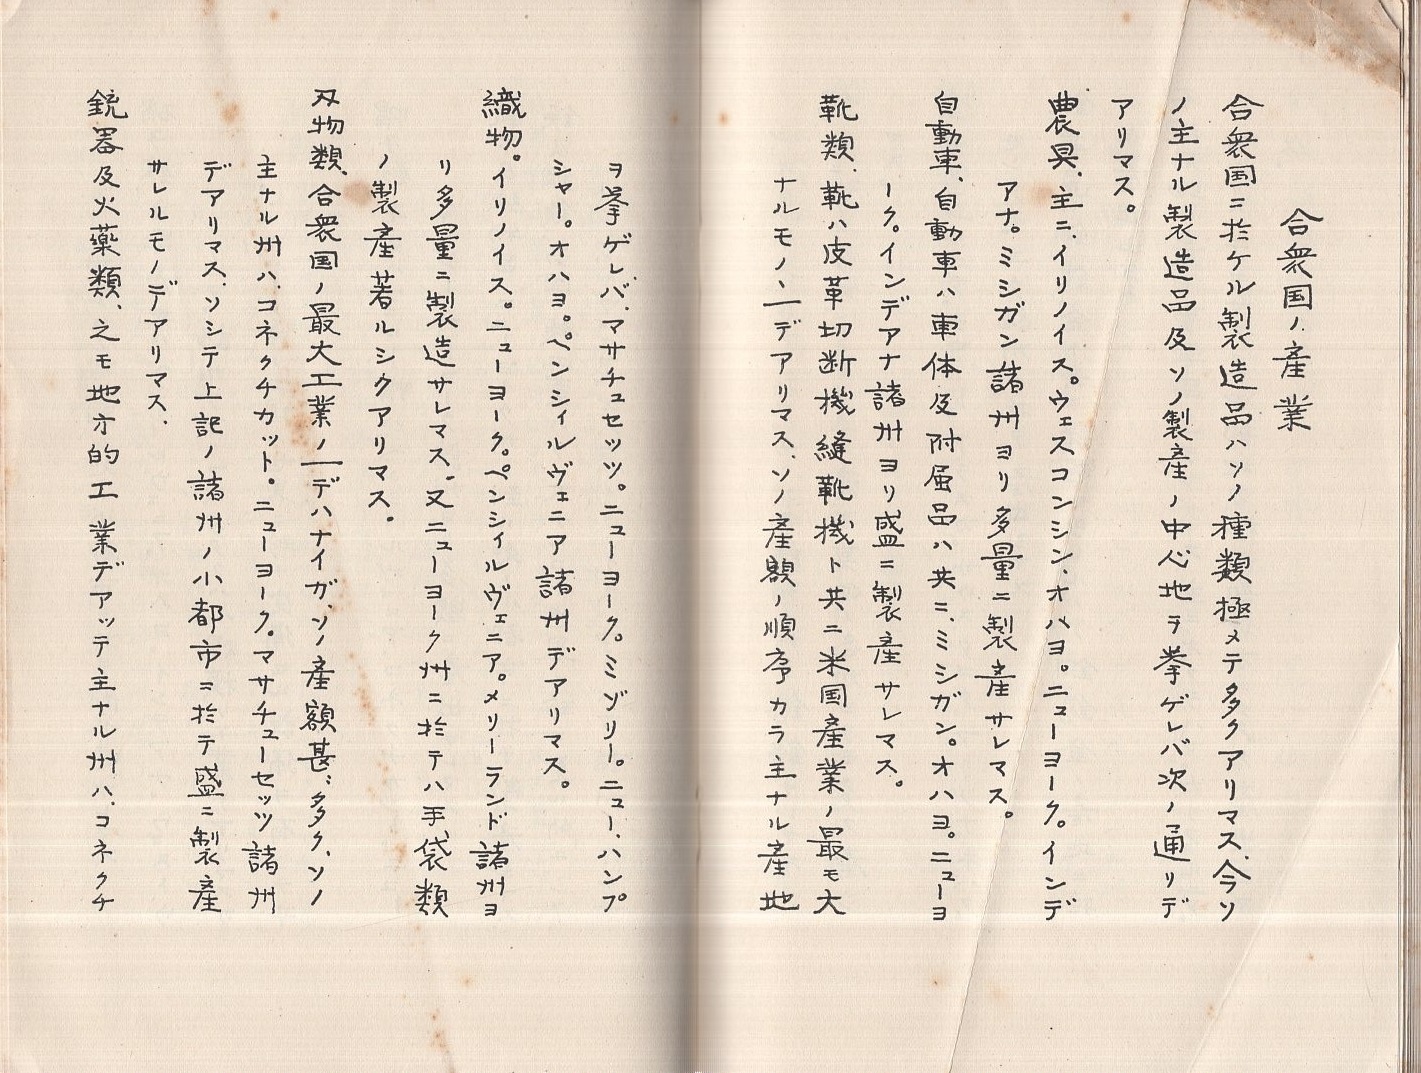 合衆国ノ産業
合衆国ニ於ケル製造品ハソノ種類極メテ多クアリマス、今ソ
ノ主ナル製造品及ソノ製産ノ中心地ヲ挙ゲレバ次ノ通リデ
アリマス。
農具、主ニ、イリノイス。ウェスコンシン、オハヨ。ニューヨーク。インデ
アナ。ミシガン諸州ヨリ多量ニ製産サレマス。
自動車、自動車ハ車体及附属品ハ共ニ、ミシガン。オハヨ。ニューヨ
ーク。インデアナ諸州ヨリ盛ニ製産サレマス。
靴類、靴ハ皮革切断機縫靴機ト共ニ米国産業ノ最モ大
ナルモノノ一デアリマス、ソノ産額ノ順序カラ主ナル産地
ヲ挙ゲレバ、マサチュセッツ。ニューヨーク。ミゾリー。ニュー、ハンプ
シャー。オハヨ。ペンシィルヴェニア諸州デアリマス。
織物。イリノイス。ニューヨーク。ペンシィルヴェニア。メリーランド諸州ヨ
リ多量ニ製造サレマス。又ニューヨーク州ニ於テハ手袋類
ノ製産著ルシクアリマス。
刄物類、合衆国ノ最大工業ノ一デハナイガ、ソノ産額甚ダ多ク、ソノ
主ナル州ハ、コネクチカット。ニューヨーク。マサチューセッツ諸州
デアリマス、ソシテ上記ノ諸州ノ小都市ニ於テ盛ニ製産
サレルモノデアリマス、
銃器及火薬類、之モ地方的工業デアッテ主ナル州ハ、コネクチ